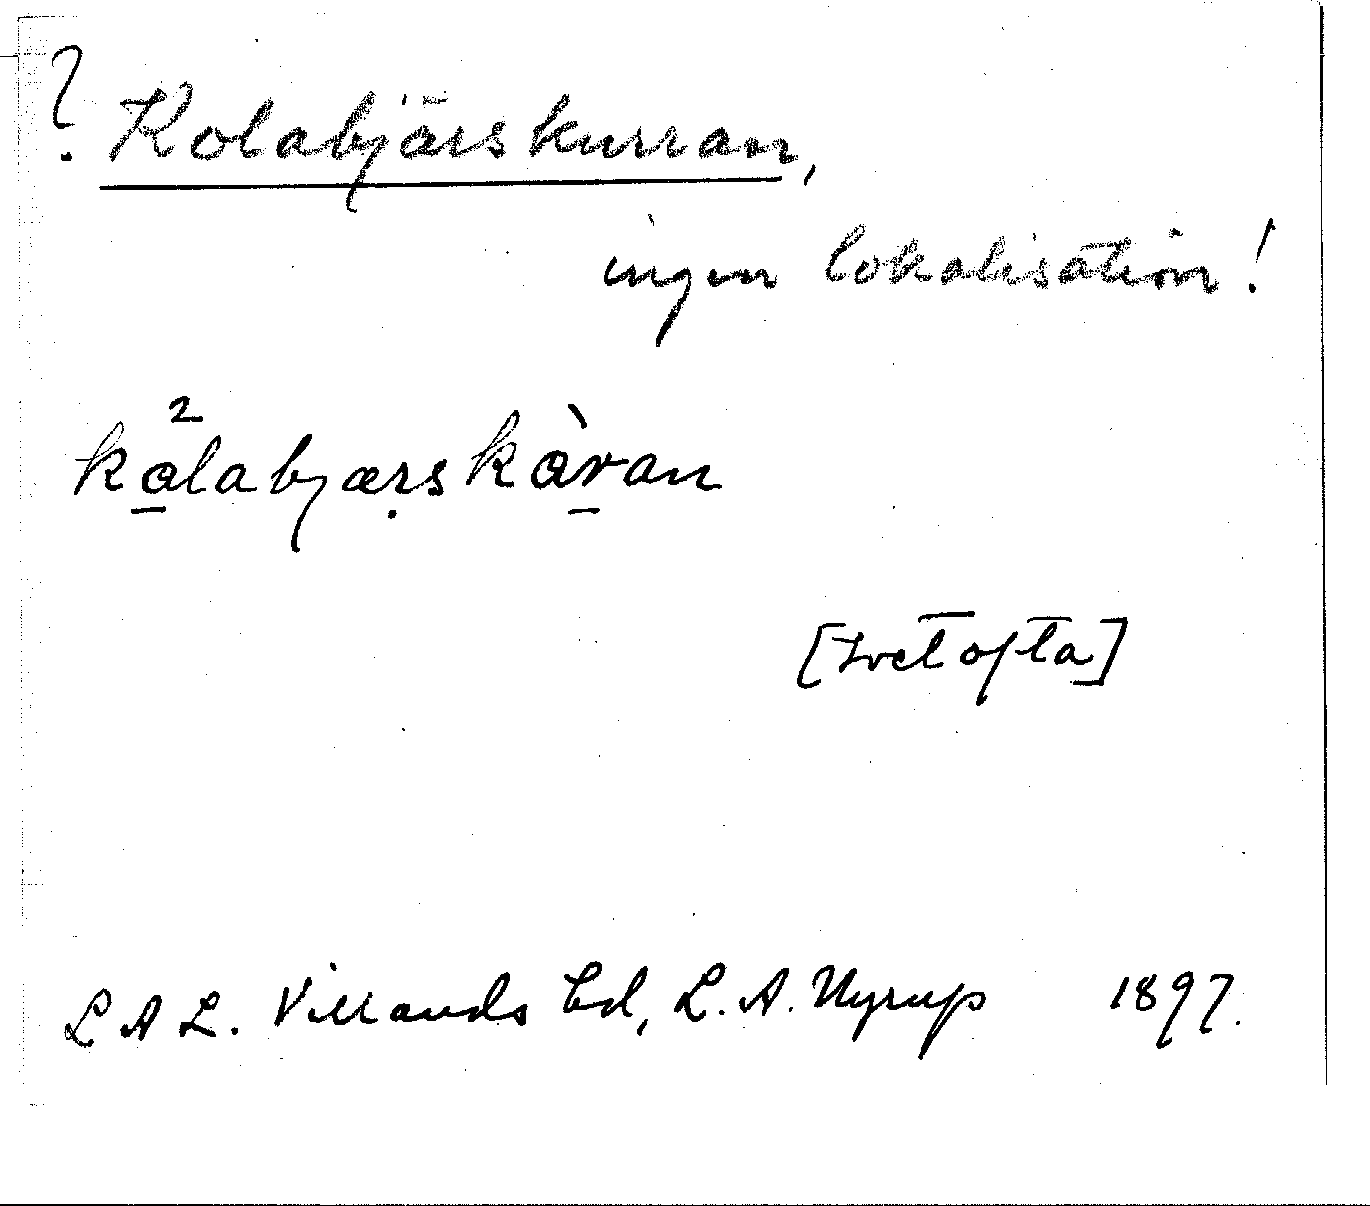 ? Kolabjärskurran,
ingen lokalisation!
kå̱²labjærskà̱van
[Ivetofta]
L A L. Villands hd, L. A. Nyrup 1897.